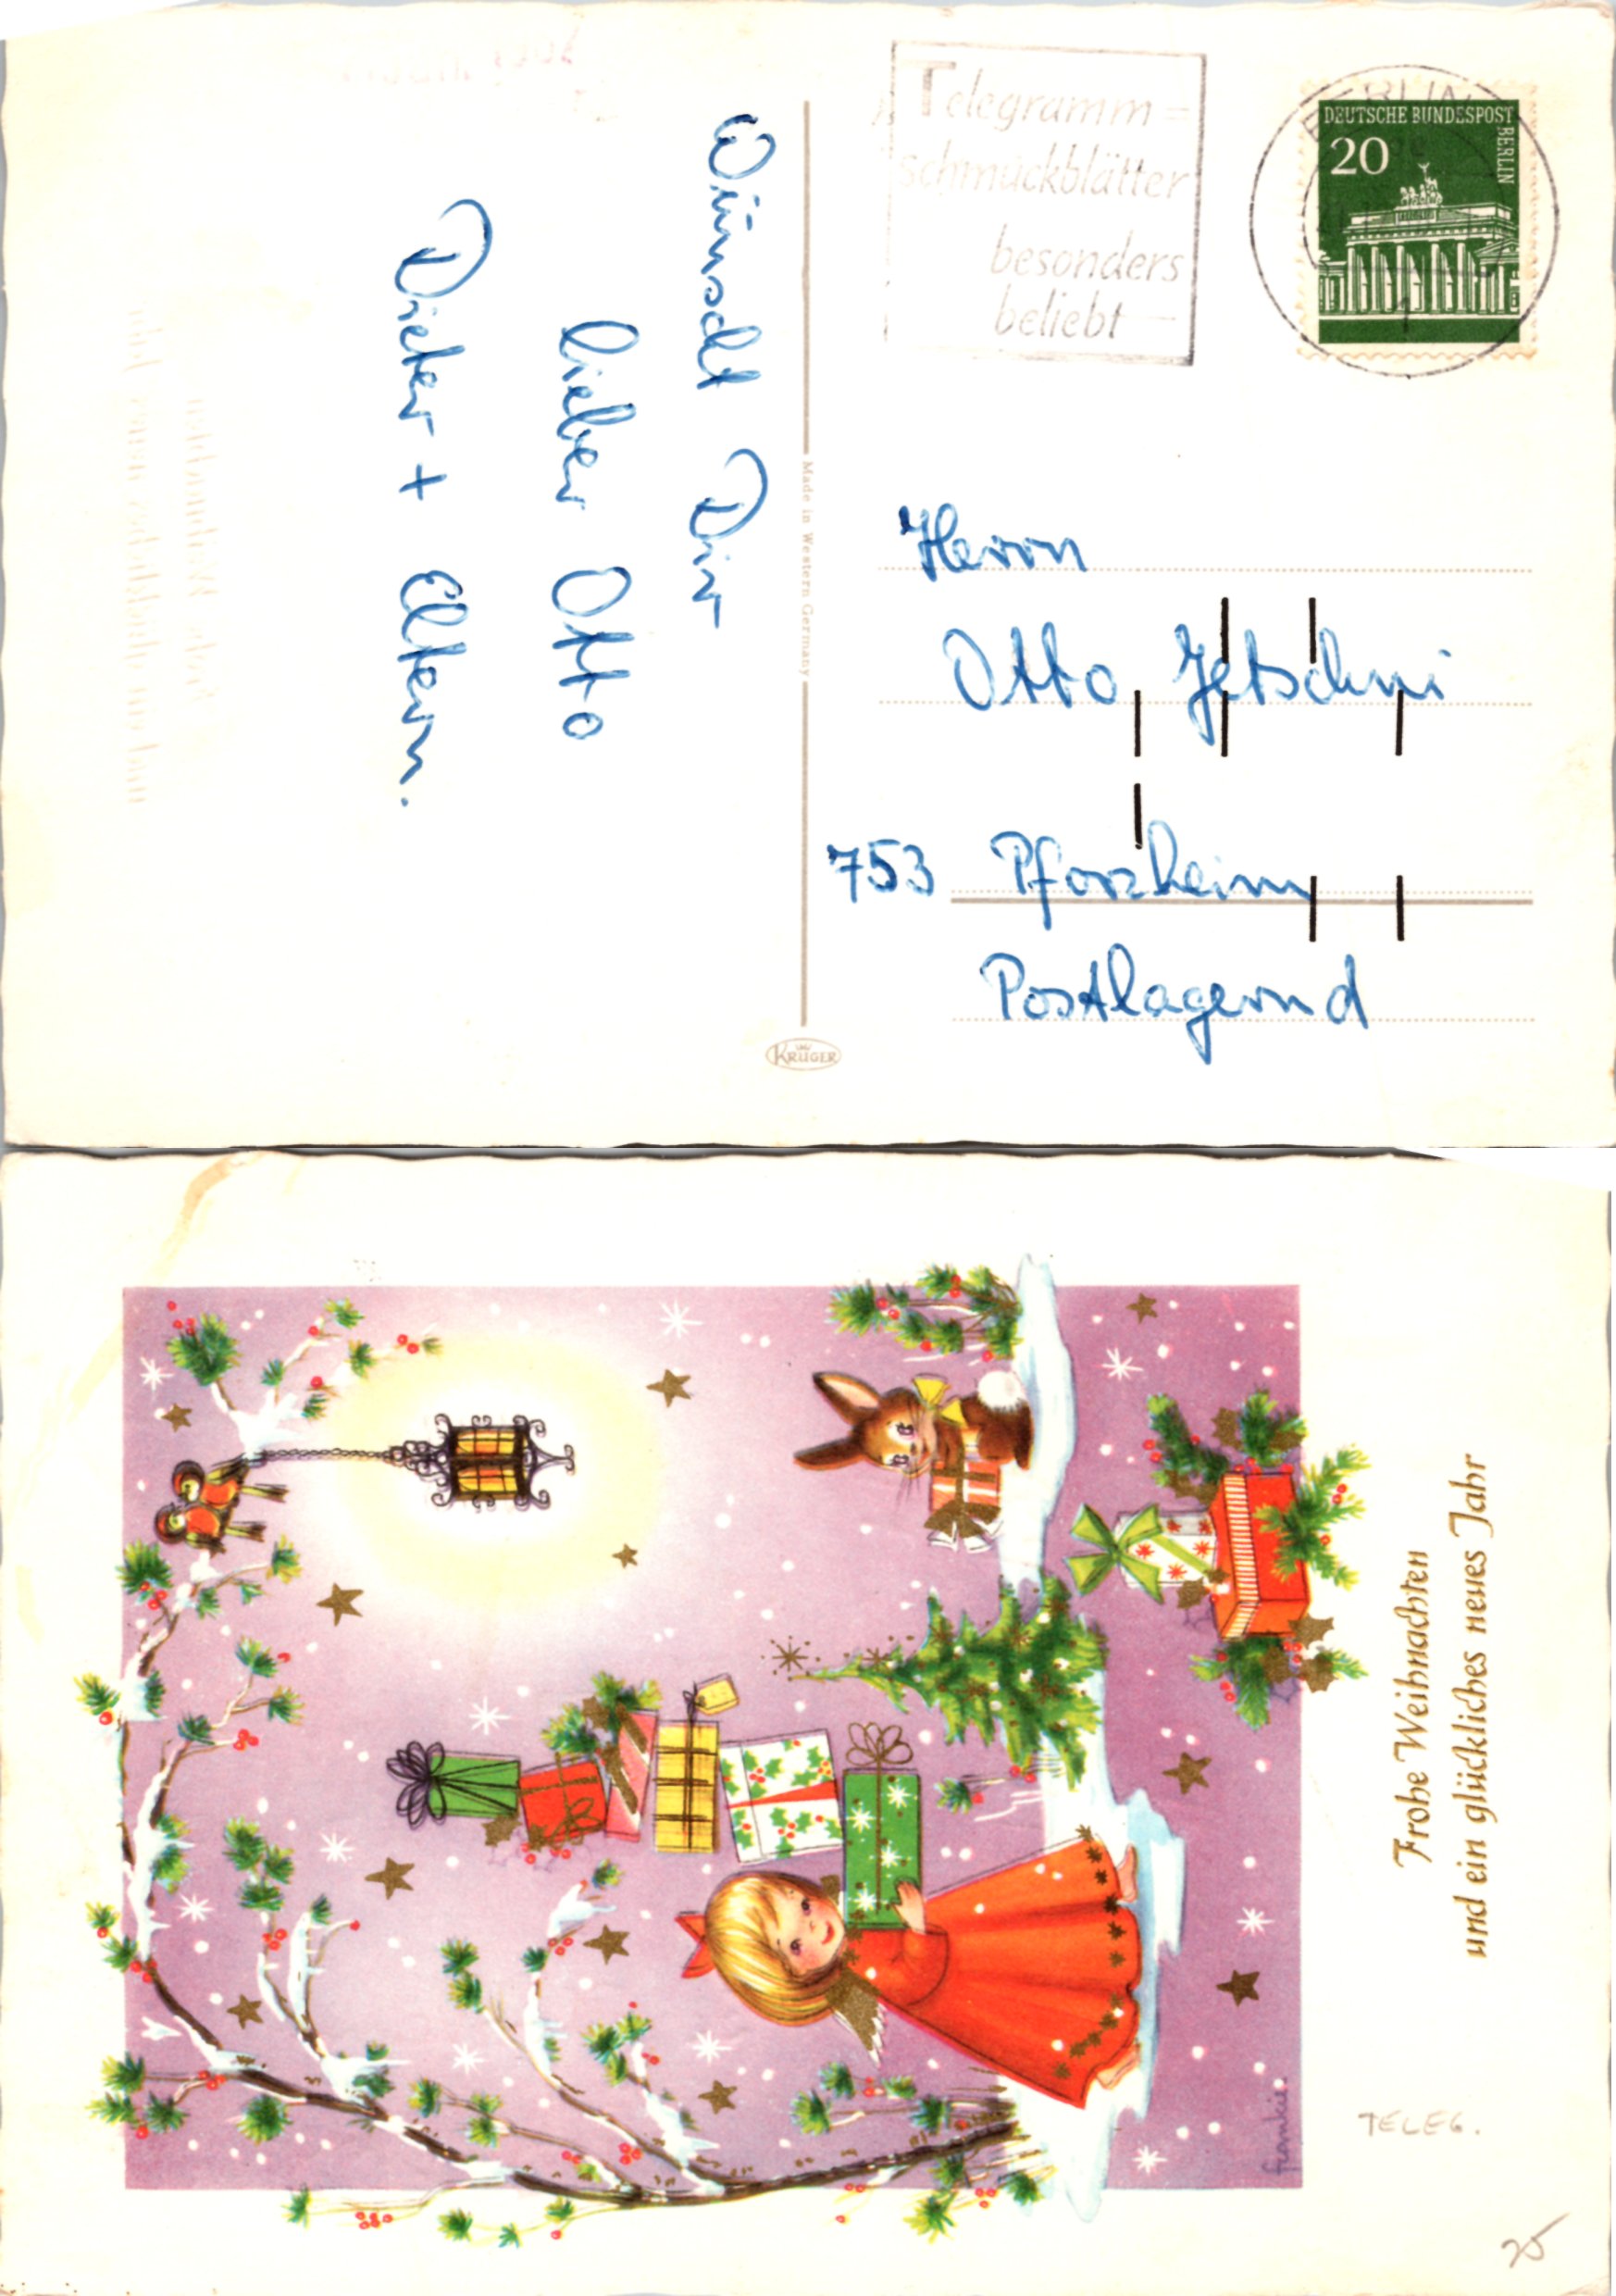 Telegramm=
schmuckblätter
besonders
beliebt –
BERLIN
1
DEUTSCHE BUNDESPOST
BERLIN
20
Wünscht Dir
lieber Otto
Dieter + Eltern.
Made in Western Germany
Herrn
Otto Jetschni
753 Pforzheim
Postlagernd
KRÜGER
Frohe Weihnachten
und ein glückliches neues Jahr
frankie.
TELEG.
25